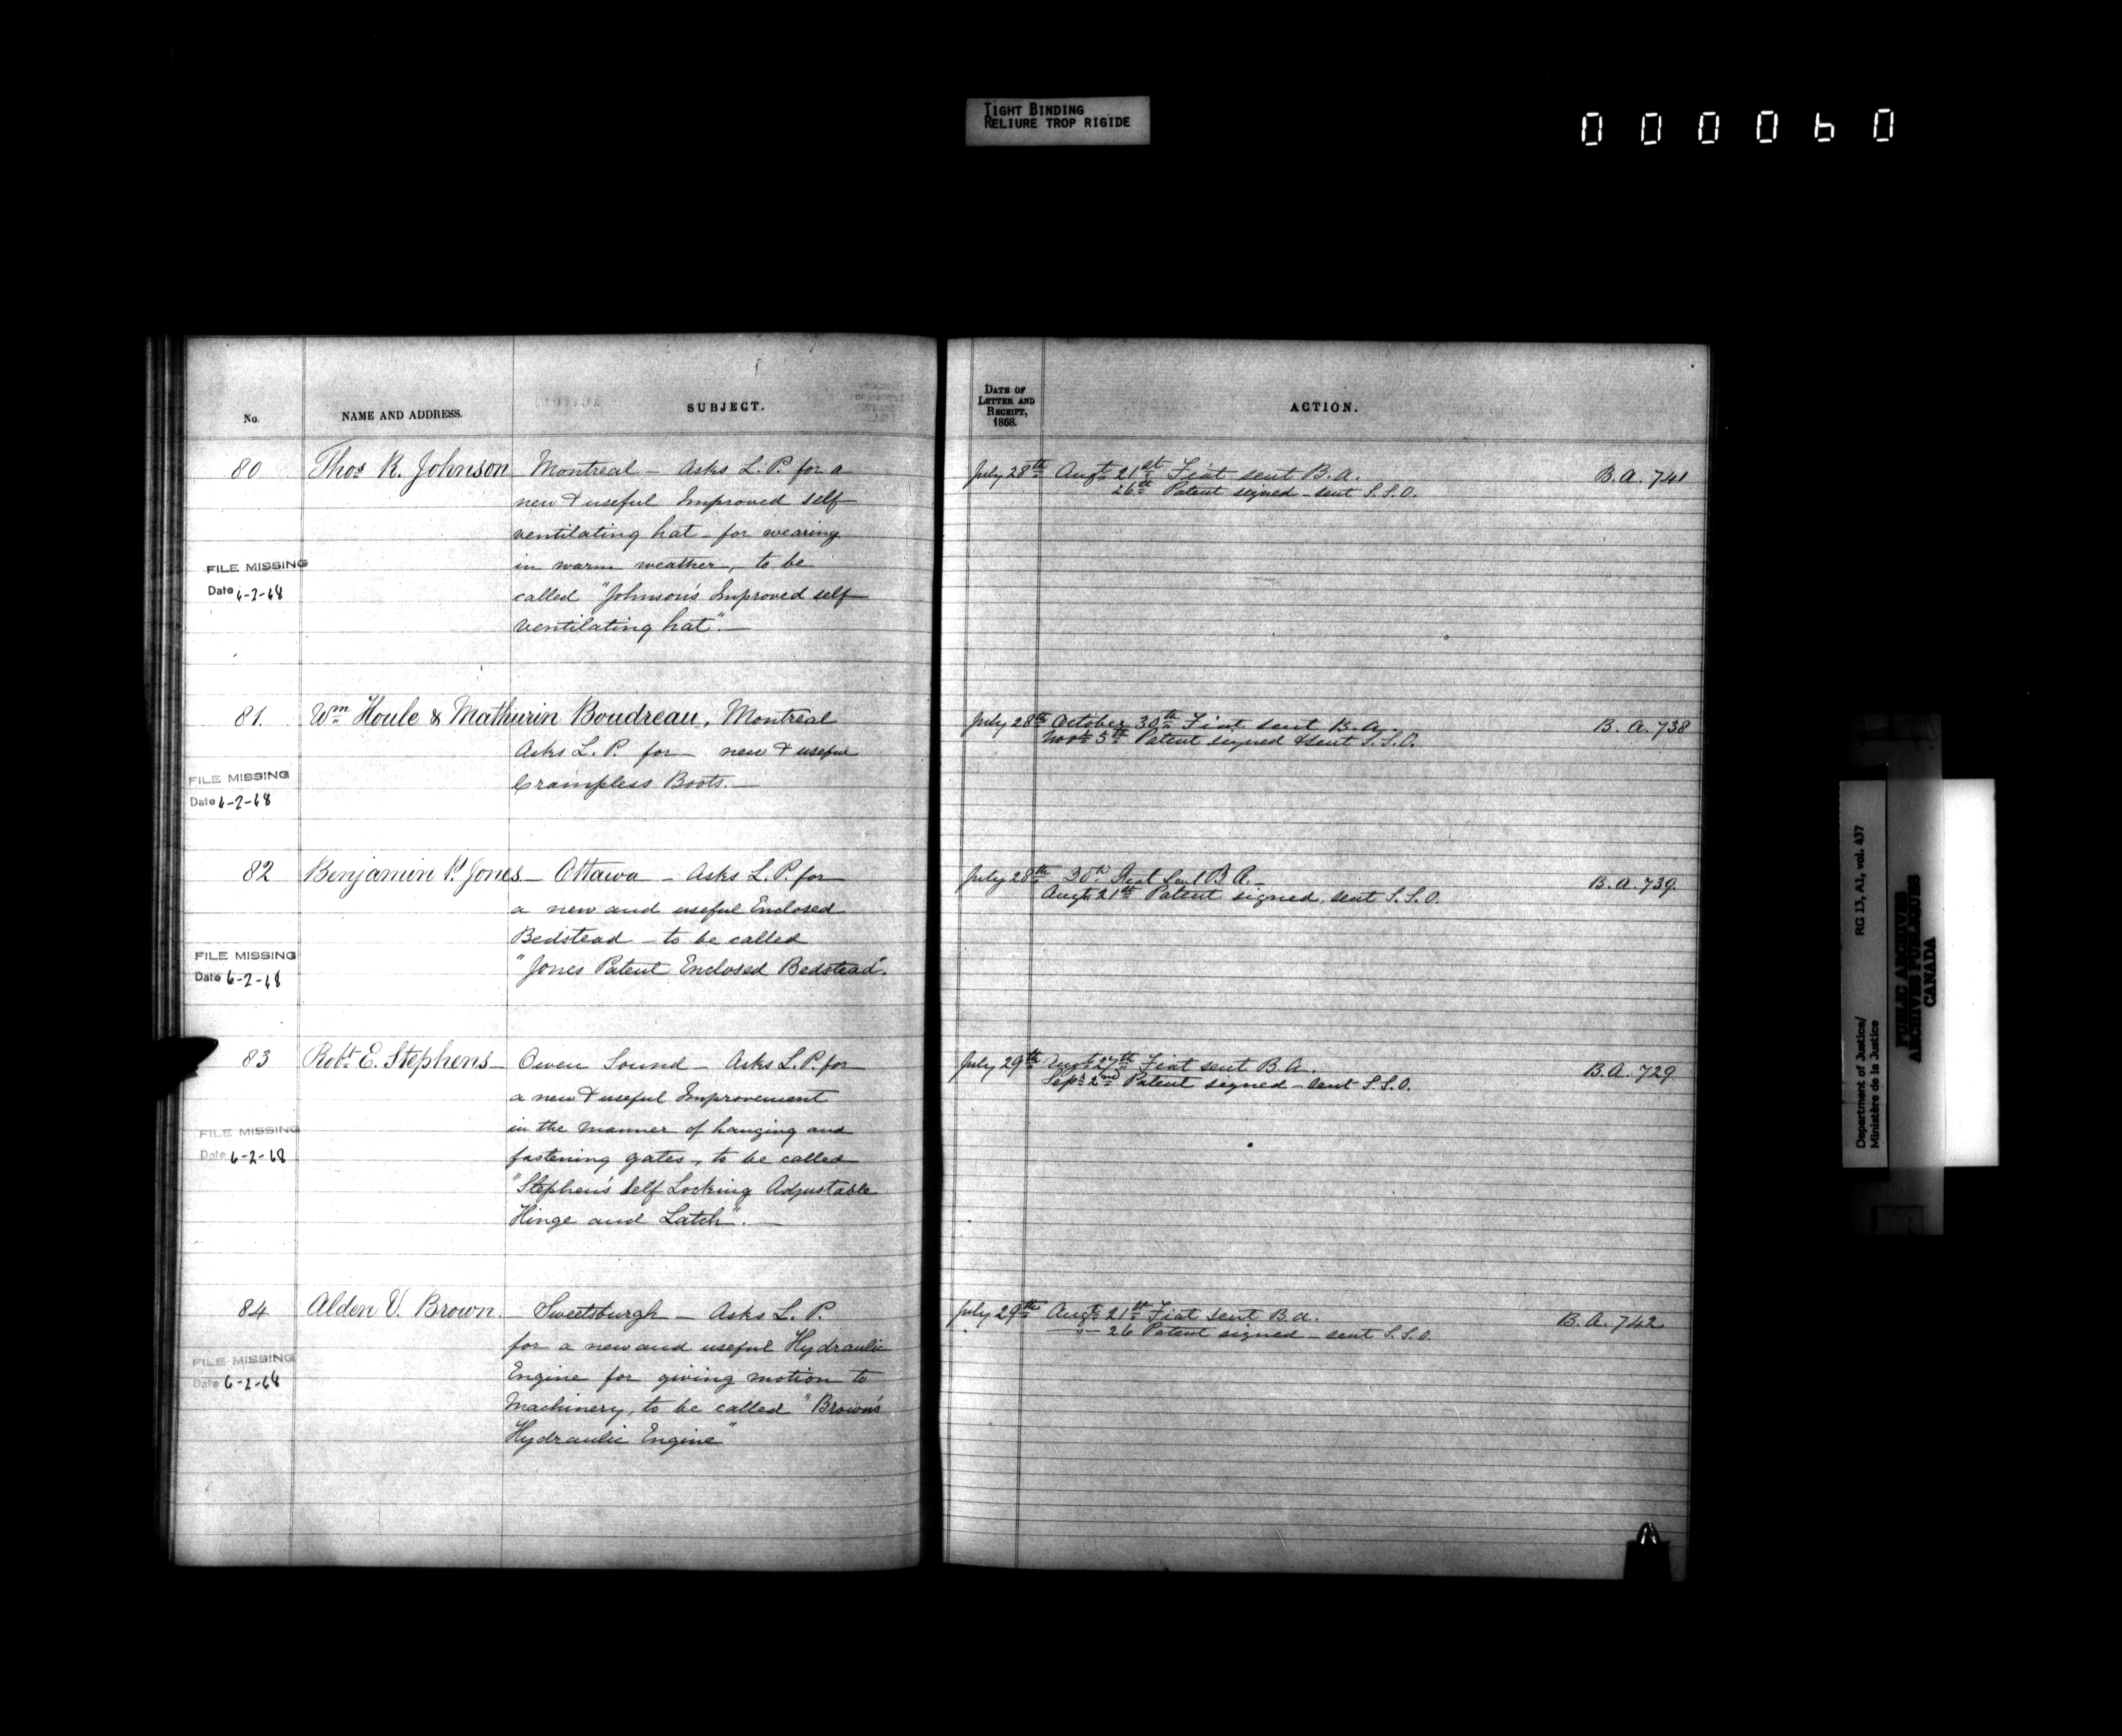 TIGHT BINDING
RELIURE TROP RIGIDE
000060
No.
NAME AND ADDRESS.
SUBJECT.
DATE OF
LETTER AND
RECEIPT,
1868.
ACTION.
80 Thos. R. Johnson Montreal – Asks L. P. for a
new & useful Improved self
ventilating hat – for wearing
in warm weather, to be
called "Johnson's Improved self
ventilating hat". —
FILE MISSING
Date 6-2-68
July 28th Augt. 21st Fiat sent B. A. B. A. 741
26th Patent signed – sent S. S. O.
81. Wm. Houle & Mathurin Boudreau, Montreal
Asks L. P. for new & useful
Crampless Boots. —
FILE MISSING
Date 6-2-68
July 28th October 30th Fiat sent B. A. B. A. 738
Novr. 5th Patent signed & sent S. S. O.
82 Benjamin P. Jones – Ottawa – Asks L. P. for
a new and useful Enclosed
Bedstead – to be called
"Jones Patent Enclosed Bedstead".
FILE MISSING
Date 6-2-68
July 28th 30th Fiat Sent B. A. — B. A. 739.
Augt. 21st Patent signed, sent S. S. O.
83 Robt. E. Stephens – Owen Sound – Asks L. P. for
a new & useful Improvement
in the manner of hanging and
fastening gates, to be called
"Stephen's Self Locking Adjustable
Hinge and Latch". —
FILE MISSING
Date 6-2-68
July 29th Augt. 27th Fiat sent B. A. B. A. 729
Sept. 2nd Patent signed – sent S. S. O.
84 Alden V. Brown. – Sweetsburgh – Asks L. P.
for a new and useful Hydraulic
Engine for giving motion to
Machinery, to be called "Brown's
Hydraulic Engine"
FILE MISSING
Date 6-2-68
July 29th Augt. 21st Fiat sent B. A. B. A. 742
—"— 26 Patent signed – sent S. S. O.
Department of Justice/
Ministère de la Justice
RG 13, A1, vol. 437
PUBLIC ARCHIVES
ARCHIVES PUBLIQUES
CANADA